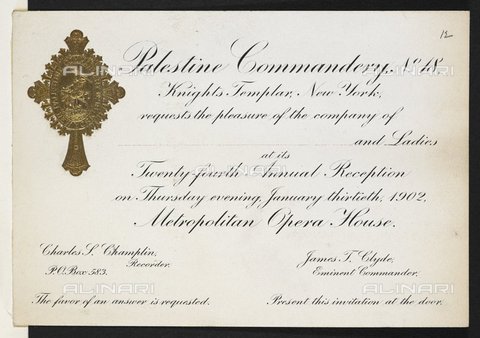 12
Palestine Commandery, No 18,
Knights Templar, New York,
requests the pleasure of the company of
and Ladies
at its
Twenty-fourth Annual Reception
on Thursday evening, January thirtieth, 1902,
Metropolitan Opera House.
Charles S. Champlin,
Recorder.
P.O. Box 583.
James T. Clyde,
Eminent Commander.
The favor of an answer is requested.
Present this invitation at the door.
ALINARI
ALINARI
ALINARI
ALINARI
ALINARI
ALINARI